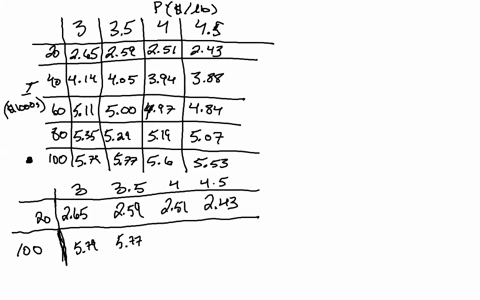 P($/lb)
3 3.5 4 4.5
20 2.65 2.59 2.51 2.43
I 40 4.14 4.05 3.94 3.88
($1000s) 60 5.11 5.00 4.97 4.84
80 5.35 5.29 5.19 5.07
100 5.79 5.77 5.6 5.53
3 3.5 4 4.5
20 2.65 2.59 2.51 2.43
100 5.79 5.77